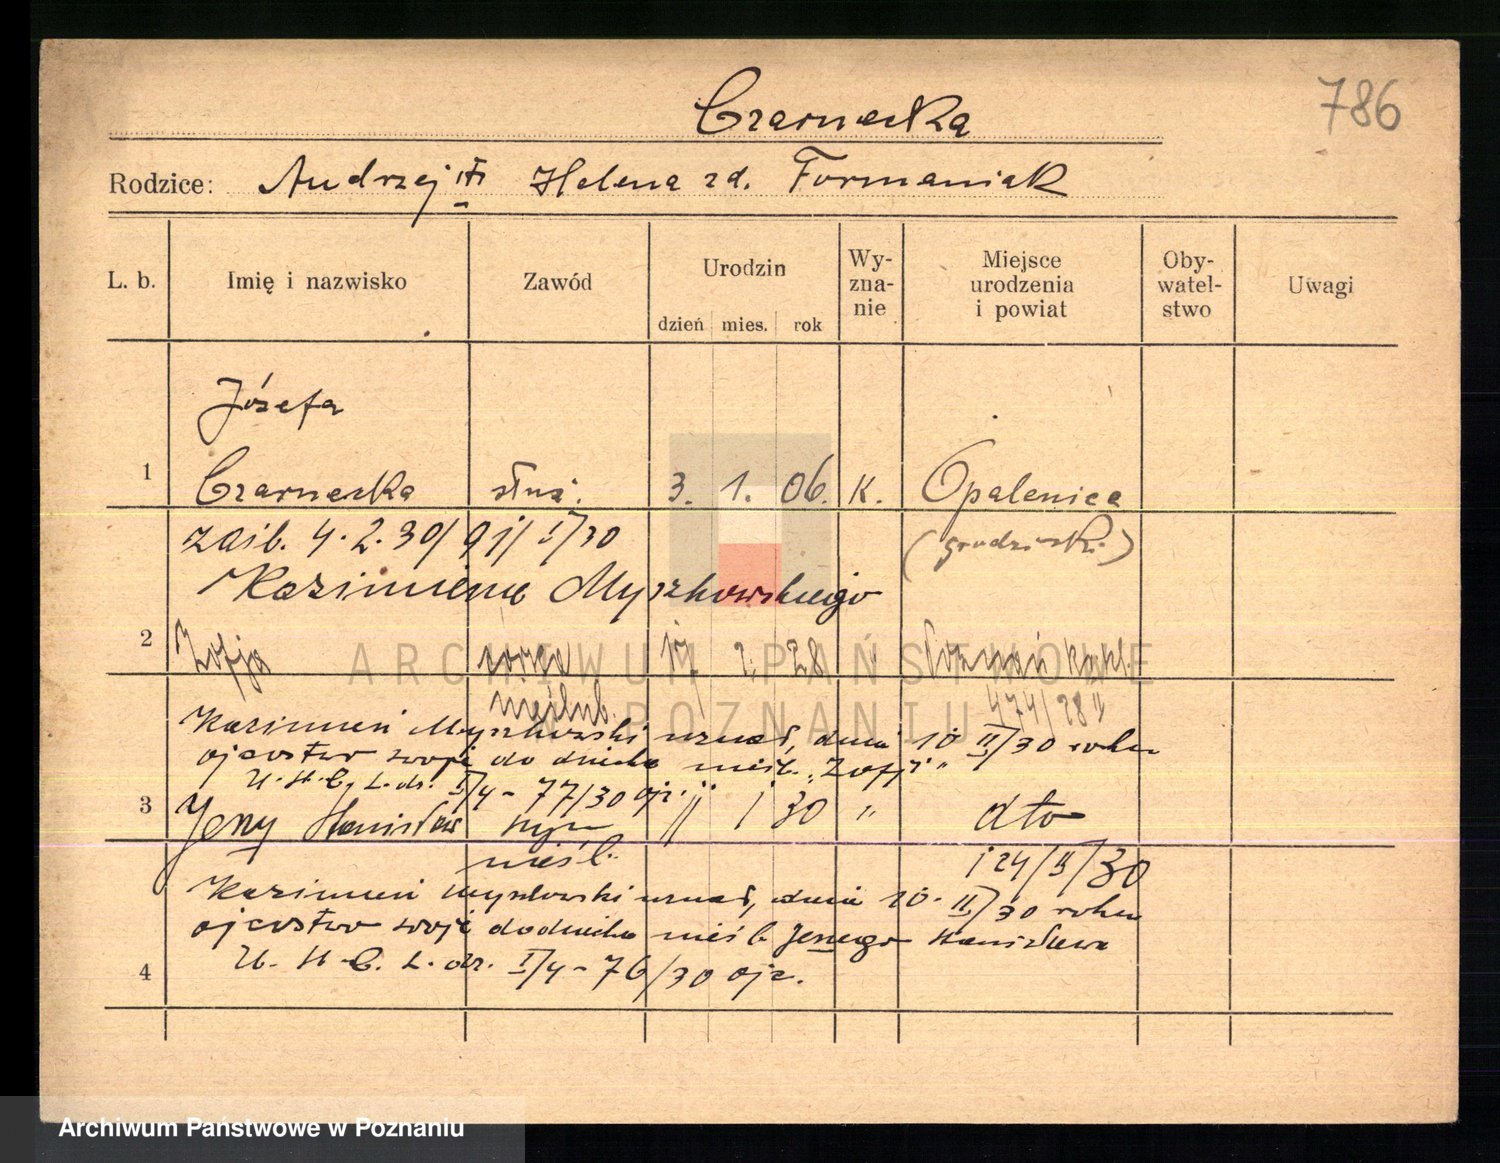 786
Czarnecka
Rodzice: Andrzej i Helena zd. Formaniak
L. b. Imię i nazwisko Zawód Urodzin Wy-zna-nie Miejsce urodzenia i powiat Oby-watel-stwo Uwagi
dzień mies. rok
Józefa
1 Czarnecka służ. 3. 1. 06. K. Opalenica
zaśl. 4.2.30/ 91/I/30 (grodziski)
Kazimierza Myszkowskiego
2 Zofja córka 17 2. 28 " Poznań
nieślub. 474/28 II
Kazimierz Myszkowski uznał, dnia 10 II/30 roku
ojcostwo swoje do dziecka nieśl. "Zofji"
U. S. C. L. dz. I/4 - 77/30 ojc.
3 Jerzy Stanisław syn 11 1 30 " dto
nieśl. 124/II/30
Kazimierz Myszkowski uznał, dnia 10. II/30 roku
ojcostwo swoje do dziecka nieśl. Jerzego Stanisława
U. S. C. L. dz. I/4 - 76/30 ojc.
4
ARCHIWUM PAŃSTWOWE
W POZNANIU
Archiwum Państwowe w Poznaniu